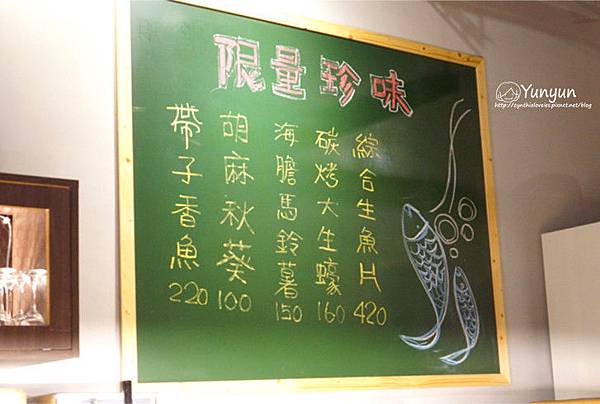 限量珍味
綜合生魚片 420
碳烤大生蠔 160
海膽馬鈴薯 150
胡麻秋葵 100
帶子香魚 220
Yunyun
http://cynthialovies.pixnet.net/blog